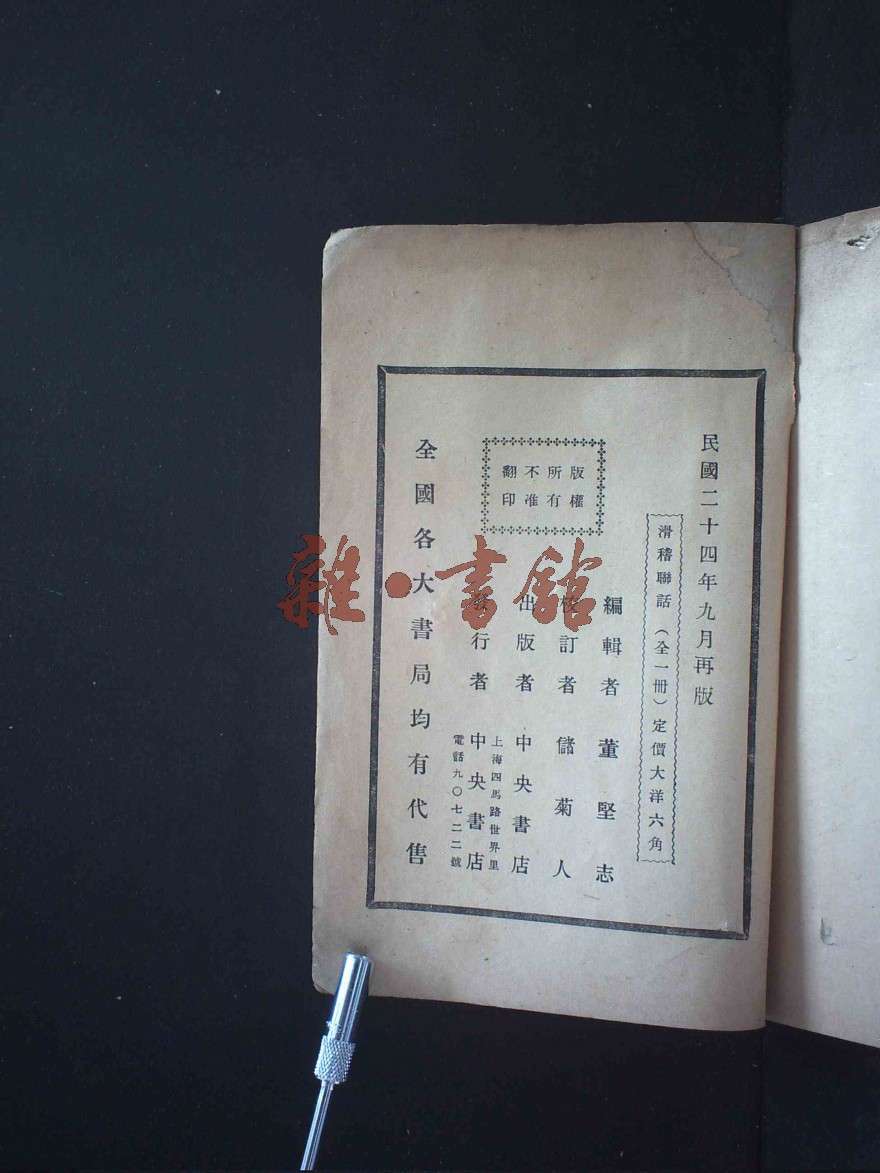 民國二十四年九月再版
滑稽聯話（全一冊）定價大洋六角
版權
所有
不准
翻印
編輯者 董堅志
校訂者 儲菊人
出版者 中央書店
上海四馬路世界里
發行者 中央書店
電話九〇七二二號
全國各大書局均有代售
雜·書館